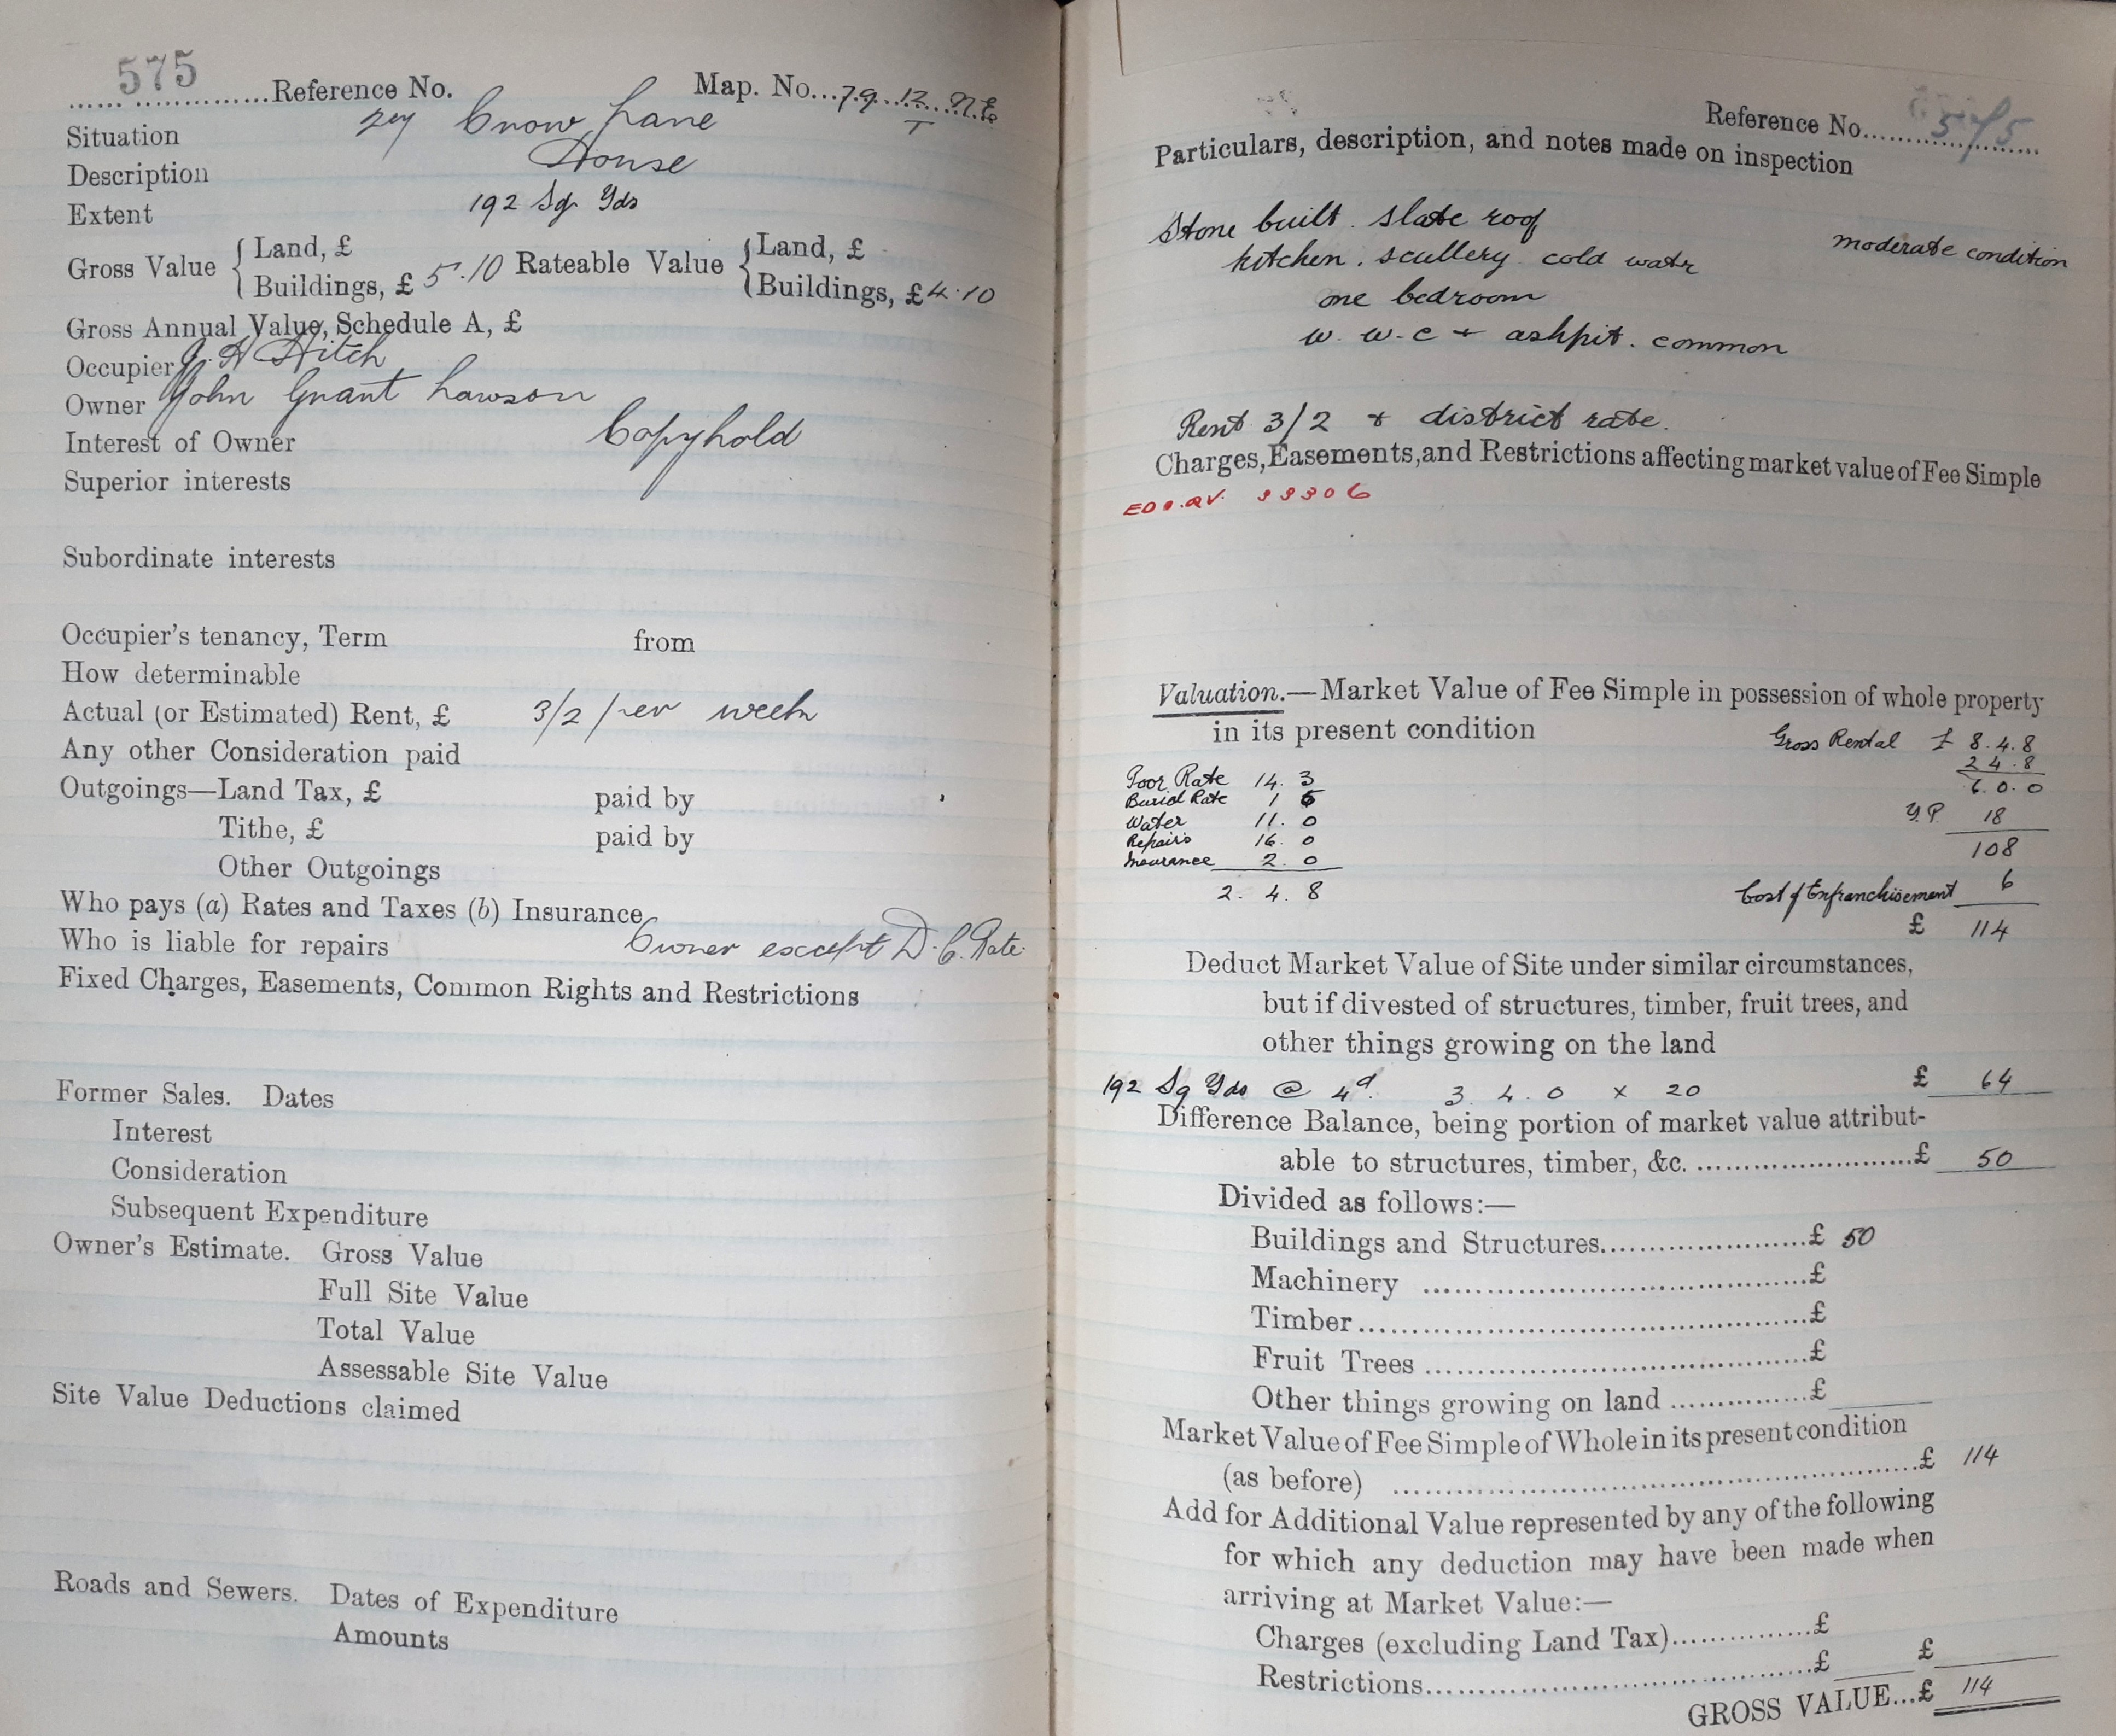 575 Reference No. Map. No... 79. 12. N.E.
Situation Crow Lane
Description House
Extent 192 Sq Yds
Gross Value { Land, £ Rateable Value { Land, £
Buildings, £ 5.10 Buildings, £ 4.10
Gross Annual Value, Schedule A, £
Occupier J. H Hitch
Owner John Grant Lawson
Interest of Owner Copyhold
Superior interests
Subordinate interests
Occupier's tenancy, Term from
How determinable
Actual (or Estimated) Rent, £ 3/2 per week
Any other Consideration paid
Outgoings—Land Tax, £ paid by
Tithe, £ paid by
Other Outgoings
Who pays (a) Rates and Taxes (b) Insurance
Who is liable for repairs Owner except D.C. Rate
Fixed Charges, Easements, Common Rights and Restrictions
Former Sales. Dates
Interest
Consideration
Subsequent Expenditure
Owner's Estimate. Gross Value
Full Site Value
Total Value
Assessable Site Value
Site Value Deductions claimed
Roads and Sewers. Dates of Expenditure
Amounts
Reference No. 575
Particulars, description, and notes made on inspection
Stone built. slate roof
moderate condition
kitchen. scullery cold water
one bedroom
w. w.c + ashpit. common
Rent 3/2 + district rate.
Charges, Easements, and Restrictions affecting market value of Fee Simple
33306
Valuation.—Market Value of Fee Simple in possession of whole property
in its present condition
Gross Rental £ 8.4.8
2 4.8
6.0.0
Y.P. 18
108
Cost of Enfranchisement 6
£ 114
Poor Rate 14. 3
Burial Rate 1 5
Water 11. 0
Repairs 16. 0
Insurance 2. 0
2. 4. 8
Deduct Market Value of Site under similar circumstances,
but if divested of structures, timber, fruit trees, and
other things growing on the land
192 Sq Yds @ 4d. 3. 4. 0 x 20 £ 64
Difference Balance, being portion of market value attribut-
able to structures, timber, &c. £ 50
Divided as follows:—
Buildings and Structures £ 50
Machinery £
Timber £
Fruit Trees £
Other things growing on land £
Market Value of Fee Simple of Whole in its present condition
(as before) £ 114
Add for Additional Value represented by any of the following
for which any deduction may have been made when
arriving at Market Value:—
Charges (excluding Land Tax) £
Restrictions £ £
GROSS VALUE...£ 114